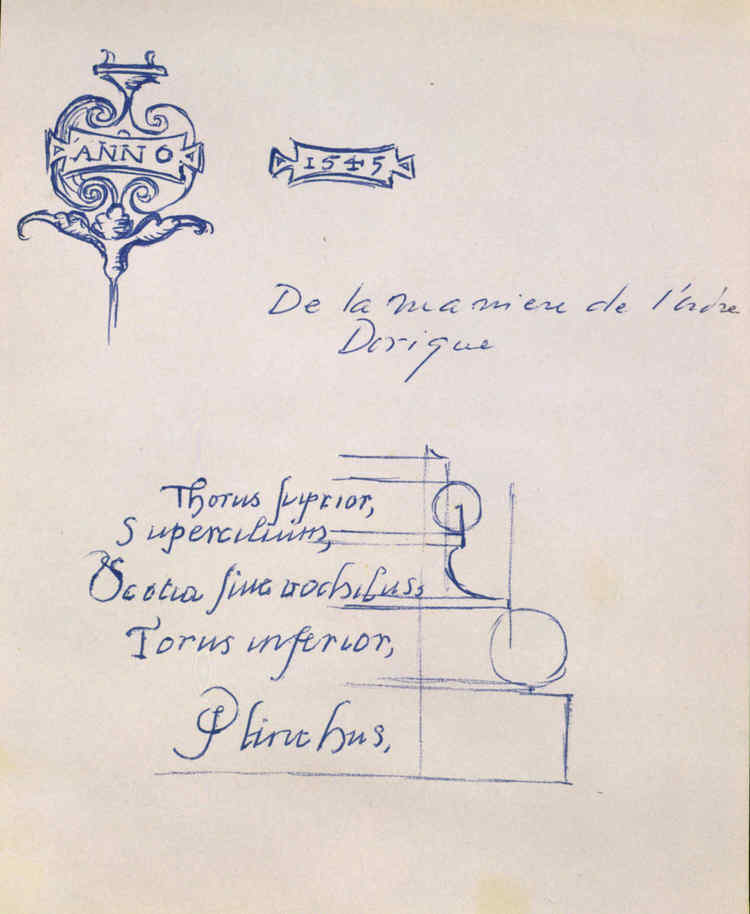 ANNO
1545
De la maniere de l'ordre
Dorique
Thorus suprior,
Supercilium,
Scotia sine trochilus,
Torus inferior,
Plinthus,